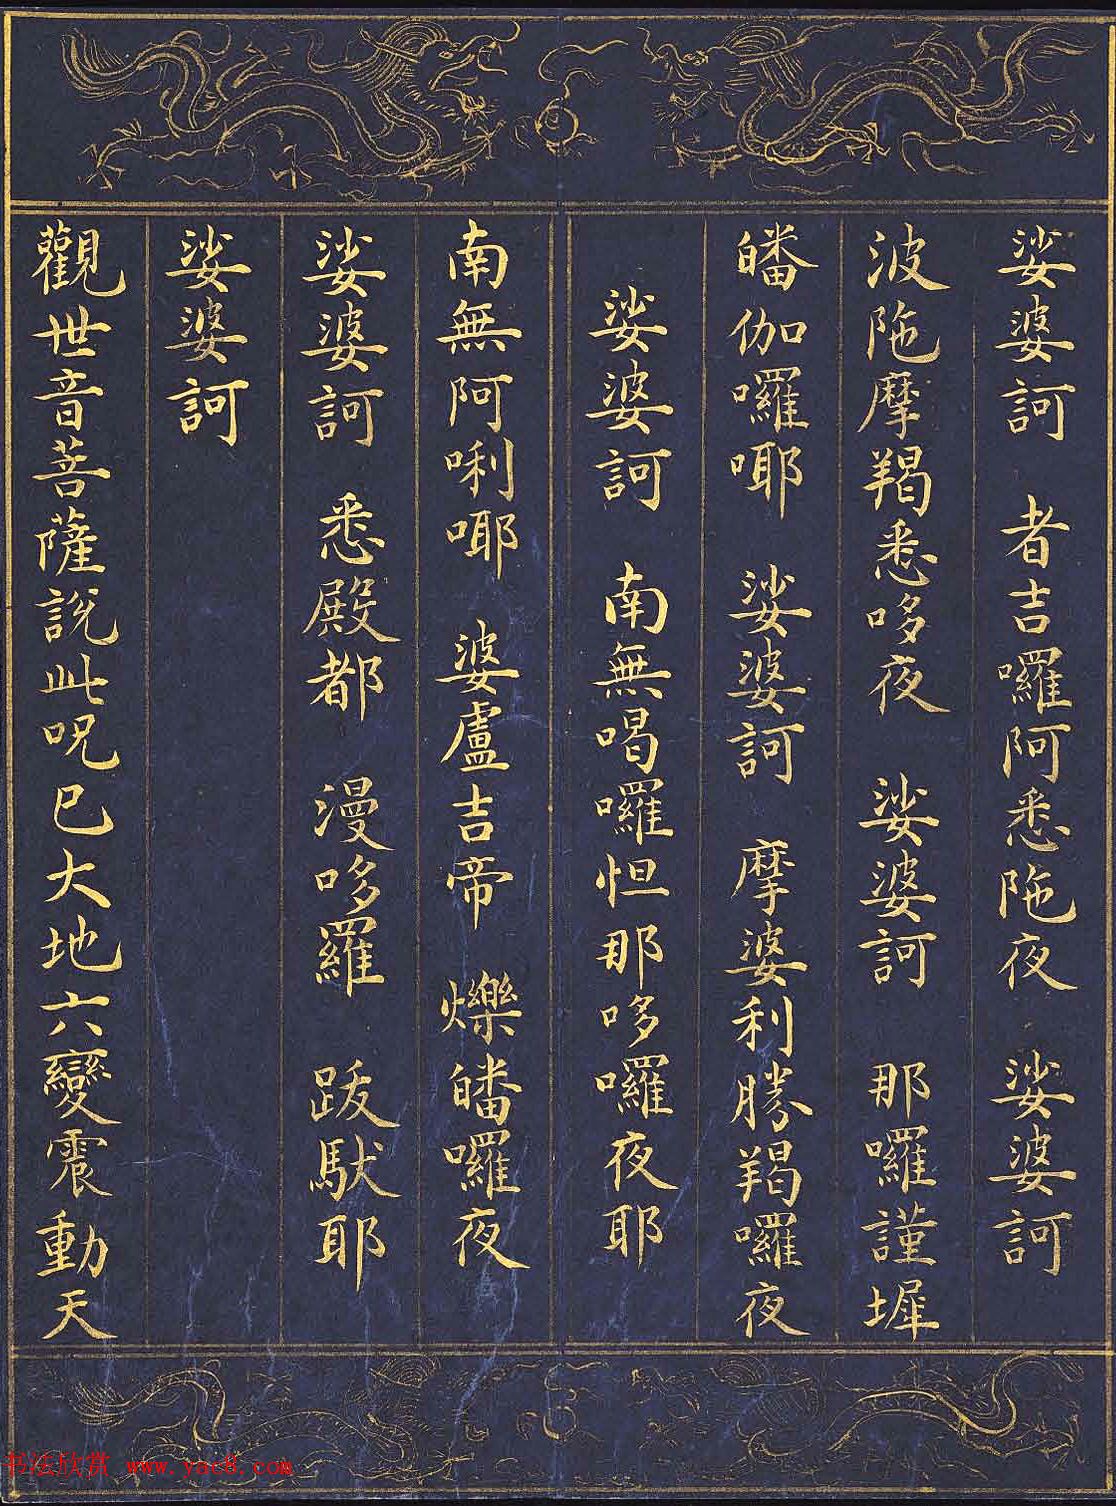 娑婆訶　者吉囉阿悉陁夜　娑婆訶
波陁摩羯悉哆夜　娑婆訶　那囉謹墀
皤伽囉㖿　娑婆訶　摩婆利勝羯囉夜
娑婆訶　南無喝囉怛那哆囉夜耶
南無阿唎㖿　婆盧吉帝　爍皤囉夜
娑婆訶　悉殿都　漫哆羅　跋馱耶
娑婆訶
觀世音菩薩說此呪已大地六變震動天
书法欣赏 www.yac8.com